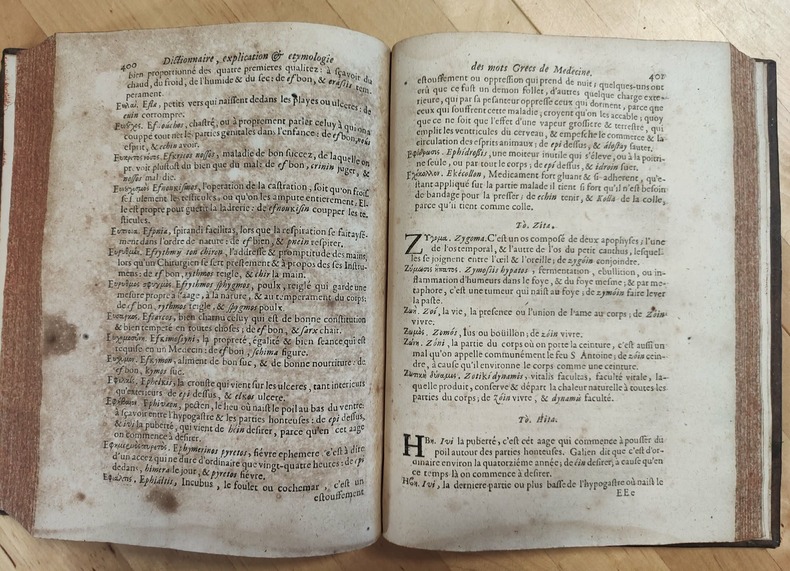 400 Dictionnaire, explication & etymologie
bien proportionné des quatre premieres qualitez: à sçavoir du
chaud, du froid, de l'humide & du sec: de ef bon, & crasiis tem-
perament.
Eula, petits vers qui naissent dedans les playes ou ulceres: de
evin corrompre.
chastré, ou à proprement parler celuy à qui on a
couppé tout net les parties genitales dans l'enfance: de ef bon, nous
esprit, & echin avoir.
maladie de bon succez, de laquelle on
pr. voit plustost du bien que du mal: de ef bon, crinin juger, &
nossos maladie.
Efnoukismos, l'operation de la castration, soit qu'on froisse
seulement les testicules, ou qu'on les ampute entierement. El-
le est propre pour guerir la ladrerie: de efnoukisin coupper les te-
sticules.
Efonia, spirandi facilitas, lors que la respiration se fait ayse-
ment dans l'ordre de nature: de ef bien, & pnein respirer.
Efrythmy ton chiron, l'addresse & promptitude des mains,
lors qu'un Chirurgien se sert prestement & à propos de ses Instru-
mens: de ef bon, rythmos reigle, & chir la main.
Efrythmos sphygmos, poulx, reiglé qui garde une
mesure propre à l'aage, à la nature, & au temperament du corps:
de ef bon, rythmos reigle, & spygmos poulx.
Efsarkos, bien charnu celuy qui est de bonne constitution
& bien temperé en toutes choses; de ef bon, & sarx chair.
Efkimosyni, la propreté, égalité & bien seance qui est
requise en un Medecin: de ef bon, schima figure.
Efkymon, aliment de bon suc, & de bonne nourriture: de
ef bon, kymos suc.
Ephelkis, la crouste qui vient sur les ulceres, tant interieurs
qu'exterieurs: de epi dessus, & elkos ulcere.
Ephiveon, pecten, le lieu où naist le poil au bas du ventre:
à sçavoir entre l'hypogastre & les parties honteuses: de epi dessus,
& ivi la puberté, qui vient de bein desirer, parce qu'en cet aage
on commence à desirer.
Ephymerinos pyretos, fiévre ephemere c'est à dire
d'un accez qui ne dure d'ordinaire que vingt-quatre heures: de epi
dedans, himera le jour, & pyretos fiévre.
Εφιάλτης, Ephialtis, Incubus, le foulet ou cochemar, c'est un
estouffement
des mots Grecs de Medecine. 401
estouffement ou oppression qui prend de nuit; quelques-uns ont
crû que ce fust un demon follet, d'autres quelque charge exte-
rieure, qui par sa pesanteur oppresse ceux qui dorment, parce que
ceux qui souffrent cette maladie, croyent qu'on les accable; quoy
que ce ne soit que l'effet d'une vapeur grossiere & terrestre, qui
emplit les ventricules du cerveau, & empesche le commerce & la
circulation des esprits animaux; de epi dessus, & alestay sauter.
Εφίδρωσις. Ephidrossis, une moiteur inutile qui s'éleve, ou à la poitri-
ne seule, ou par tout le corps; de epi dessus, & idroin suer.
Ekècollon, Medicament fort gluant & si-adherent, qu'e-
stant appliqué sur la partie malade il tient si fort qu'il n'est besoin
de bandage pour la presser; de echin tenir, & Kolla de la colle,
parce qu'il tient comme colle.
Τὸ. Zita.
Zygoma. C'est un os composé de deux apophyses; l'une
de l'os temporal, & l'autre de l'os du petit canthus, lesquel-
les se joignent entre l'œil & l'oreille; de zygóin conjoindre.
Zymossiis hypatos, fermentation, ebullition, ou in-
flammation d'humeurs dans le foye, & du foye mesme; & par me-
taphore, c'est une tumeur qui naist au foye; de zymóin faire lever
la paste.
Ζωὴ. Zoí, la vie, la presence ou l'union de l'ame au corps; de Zóin
vivre.
Ζωμὸς. Zomós, Ius ou boüillon; de zóin vivre.
Zóni, la partie du corps où on porte la ceinture, c'est aussi un
mal qu'on appelle communement le feu S Antoine; de zóin cein-
dre, à cause qu'il environne le corps comme une ceinture.
Zotikí dynamis, vitalis facultas, faculté vitale, la-
quelle produit, conserve & départ la chaleur naturelle à toutes les
parties du corps; de Zóin vivre, & dynamis faculté.
Τὸ. Hita.
Ηβη. Ivi la puberté, c'est cét aage qui commence à pousser du
poil autour des parties honteuses. Galien dit que c'est d'or-
dinaire environ la quatorziéme année; de éin desirer, à cause qu'en
ce temps là on commence à desirer.
Ivi, la derniere partie ou plus basse de l'hypogastre où naist le
EEe